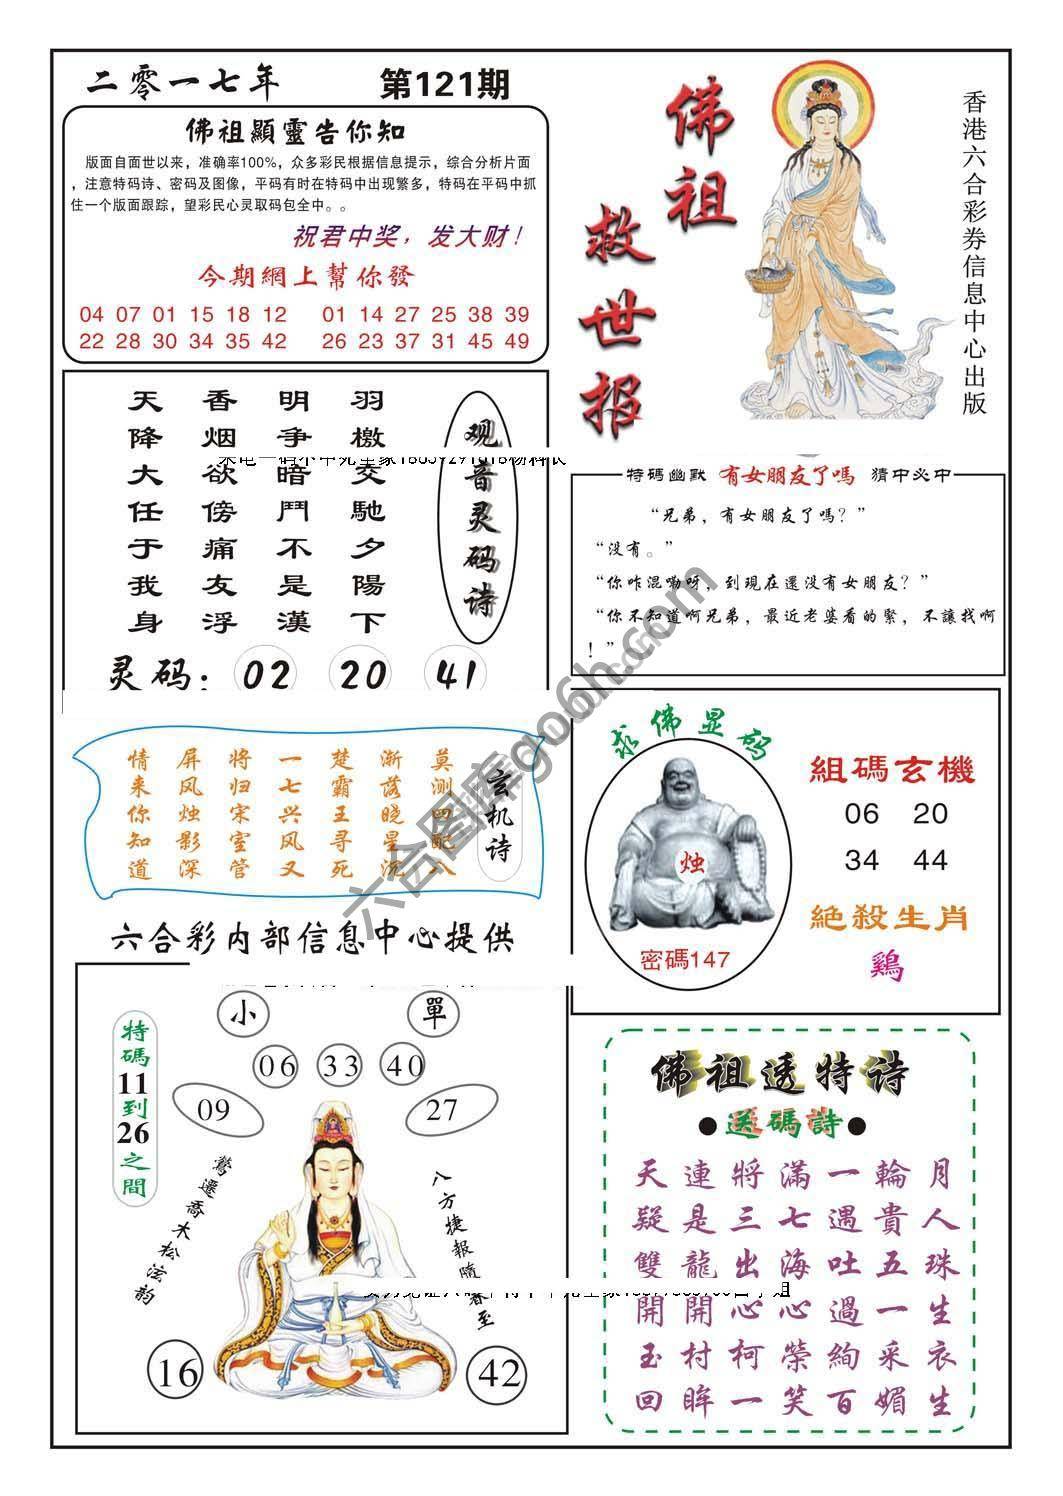 二零一七年 第121期
佛祖顯靈告你知
版面自面世以来，准确率100%，众多彩民根据信息提示，综合分析片面
，注意特码诗、密码及图像，平码有时在特码中出现繁多，特码在平码中抓
住一个版面跟踪，望彩民心灵取码包全中。。
祝君中奖，发大财！
今期網上幫你發
04 07 01 15 18 12 01 14 27 25 38 39
22 28 30 34 35 42 26 23 37 31 45 49
佛祖
救世报
香港六合彩券信息中心出版
天降大任于我身
香烟欲傍痛友浮
明争暗鬥不是漢
羽檄交馳夕陽下
观音灵码诗
灵码：02 20 41
特码幽默 有女朋友了嗎 猜中必中
“兄弟，有女朋友了嗎？”
“没有。”
“你咋混嘞呀，到現在還没有女朋友？”
“你不知道啊兄弟，最近老婆看的緊，不讓找啊
！”
情来你知道
屏风烛影深
将归宋室管
一七兴风又
楚霸王寻死
渐落晓星沉
莫测四配八
玄机诗
六合彩内部信息中心提供
求佛显码
烛
密碼147
組碼玄機
06 20
34 44
絕殺生肖
鷄
小 單
06 33 40
09 27
特碼11到26之間
鶯遷喬木松浤韵
八方捷報隨春至
16 42
佛祖透特诗
●送碼詩●
天連將滿一輪月
疑是三七遇貴人
雙龍出海吐五珠
開開心心過一生
玉村柯榮絢采衣
回眸一笑百媚生
六合图库go6h.com